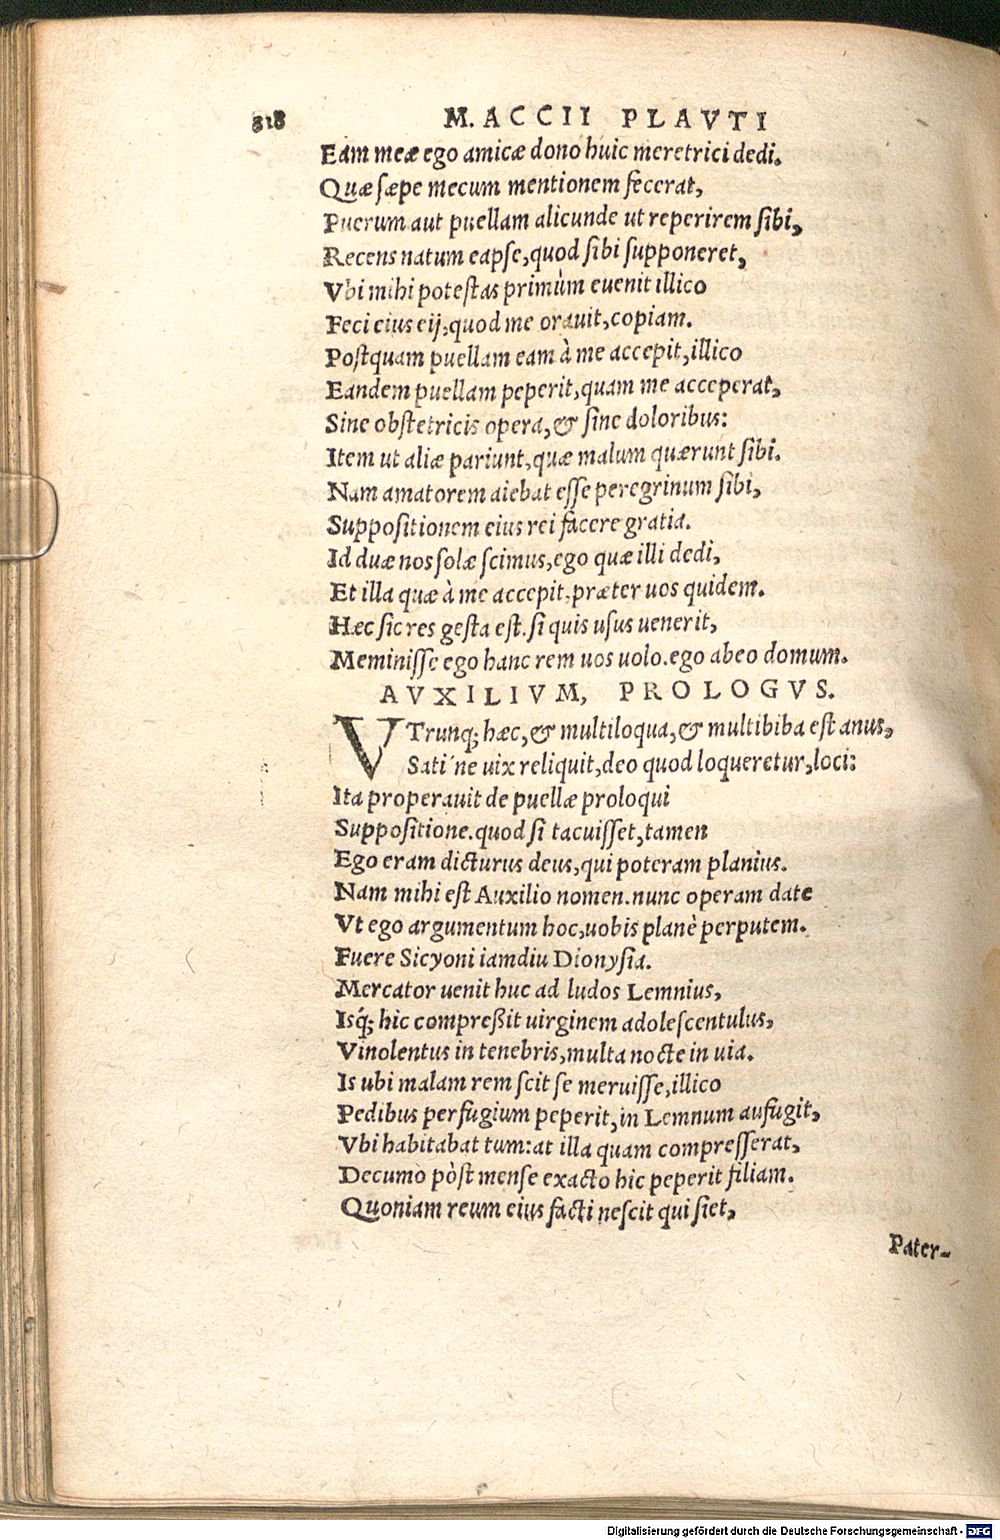 818 M. ACCII PLAVTI
Eam meæ ego amicæ dono huic meretrici dedi.
Quæ sæpe mecum mentionem fecerat,
Puerum aut puellam alicunde ut reperirem sibi,
Recens natum eapse, quod sibi supponeret,
Vbi mihi potestas primùm euenit illico
Feci eius eij, quod me orauit, copiam.
Postquam puellam eam à me accepit, illico
Eandem puellam peperit, quam me acceperat,
Sine obstetricis opera, & sine doloribus:
Item ut aliæ pariunt, quæ malum quærunt sibi.
Nam amatorem aiebat esse peregrinum sibi,
Suppositionem eius rei facere gratia.
Id duæ nos solæ scimus, ego quæ illi dedi,
Et illa quæ à me accepit, præter uos quidem.
Hæc sic res gesta est. si quis usus uenerit,
Meminisse ego hanc rem uos uolo. ego abeo domum.
AVXILIVM, PROLOGVS.
VTrunq; hæc, & multiloqua, & multibiba est anus,
Sati´ne uix reliquit, deo quod loqueretur, loci:
Ita properauit de puellæ proloqui
Suppositione. quod si tacuisset, tamen
Ego eram dicturus deus, qui poteram planius.
Nam mihi est Auxilio nomen. nunc operam date
Vt ego argumentum hoc, uobis planè perputem.
Fuere Sicyoni iamdiu Dionysia.
Mercator uenit huc ad ludos Lemnius,
Isq́; hic compreßit uirginem adolescentulus,
Vinolentus in tenebris, multa nocte in uia.
Is ubi malam rem scit se meruisse, illico
Pedibus perfugium peperit, in Lemnum aufugit,
Vbi habitabat tum: at illa quam compresserat,
Decumo pòst mense exacto hic peperit filiam.
Quoniam reum eius facti nescit qui siet,
Pater-
Digitalisierung gefördert durch die Deutsche Forschungsgemeinschaft - DFG